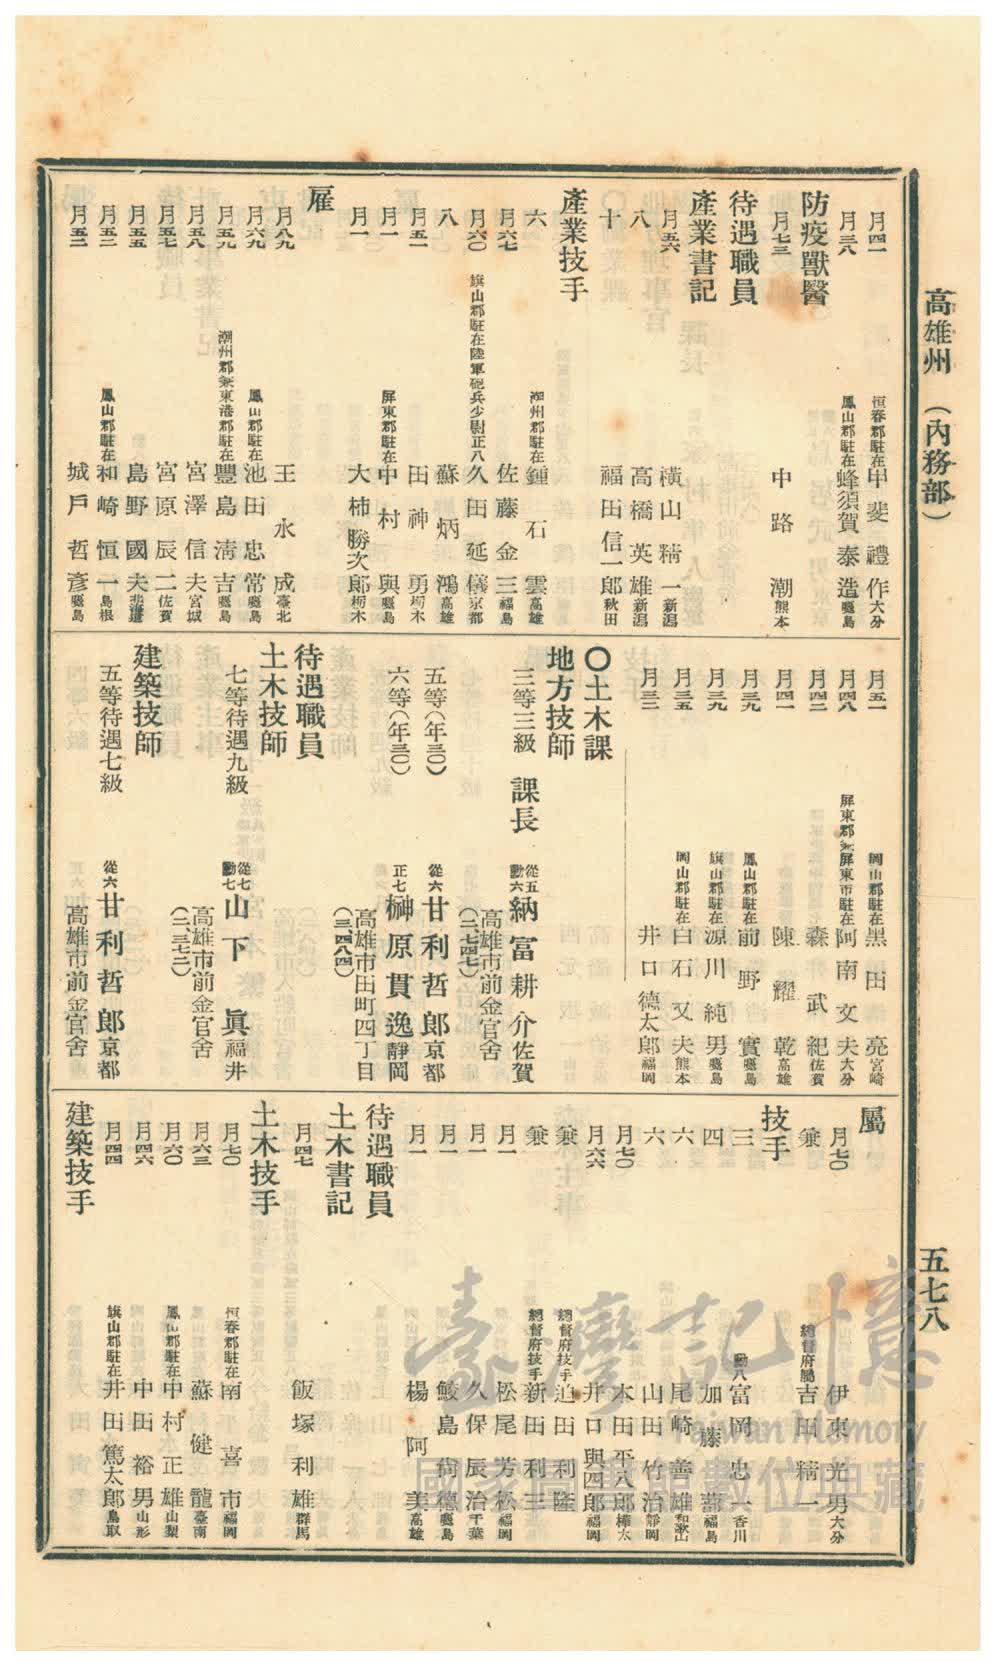 高雄州 (內務部)
五七八
月四一 恒春郡駐在 甲斐禮作 大分
月三八 鳳山郡駐在 蜂須賀泰造 鹿兒島
防疫獸醫
月七三 中路潮 熊本
待遇職員
產業書記
月五六 橫山精一 新潟
八 高橋英雄 新潟
十 福田信一郎 秋田
產業技手
六 潮州郡駐在 鍾石雲 高雄
月六七 佐藤金三 福島
月六〇 旗山郡駐在陸軍砲兵少尉正八 久田延儀 京都
八 蘇炳鴻 高雄
月五一 田神勇 栃木
月一 屏東郡駐在 中村興
月一 大柿勝次郎 栃木
雇
月八九 王水成 臺北
月六九 鳳山郡駐在 池田忠常
月五九 潮州郡兼東港郡駐在 豐島淸吉
月五八 宮澤信夫 宮城
月五七 宮原辰二 佐賀
月五五 島野國夫 北海道
月五二 鳳山郡駐在 和崎恒一 島根
月五二 城戶哲彥
月五一 岡山郡駐在 黑田亮 宮崎
月四八 屏東郡兼屏東市駐在 阿南文夫 大分
月四二 森武紀 佐賀
月四一 陳耀乾 高雄
月三九 鳳山郡駐在 前野實
月三九 旗山郡駐在 源川純男
月三五 岡山郡駐在 白石又夫 熊本
月三三 井口德太郎 福岡
〇土木課
地方技師
三等三級 課長 從五勳六 納富耕介 佐賀
高雄市前金官舍
(二、七四七)
五等(年三〇) 從六 甘利哲郎 京都
六等(年三〇) 正七 榊原貫逸 靜岡
高雄市田町四丁目
(三、四八四)
待遇職員
土木技師
七等待遇九級 從七勳七 山下眞 福井
高雄市前金官舍
(二、三七二)
建築技師
五等待遇七級 從六 甘利哲郎 京都
高雄市前金官舍
屬
月七〇 伊東光男 大分
兼 總督府屬 吉田精一
技手
三 勳八 富岡忠一 香川
四 加藤 福島
六 尾崎善雄 和歌山
六 山田竹治 靜岡
月七〇 本田平八郎 樺太
月六六 井口與四郎 福岡
兼 總督府技手 迫田利隆
兼 總督府技手 新田利三
月一 松尾芳松 福岡
月一 久保辰治 千葉
月一 鮫島尙德
月一 楊阿美 高雄
待遇職員
土木書記
月四七 飯塚利雄 群馬
土木技手
月七〇 恒春郡駐在 南喜市 福岡
月六三 蘇健龍 臺南
月六〇 鳳山郡駐在 中村正雄 山梨
月四六 中田裕男 山形
月四四 旗山郡駐在 井田篤太郎 鳥取
建築技手
臺灣記憶
Taiwan Memory
國家圖書館數位典藏